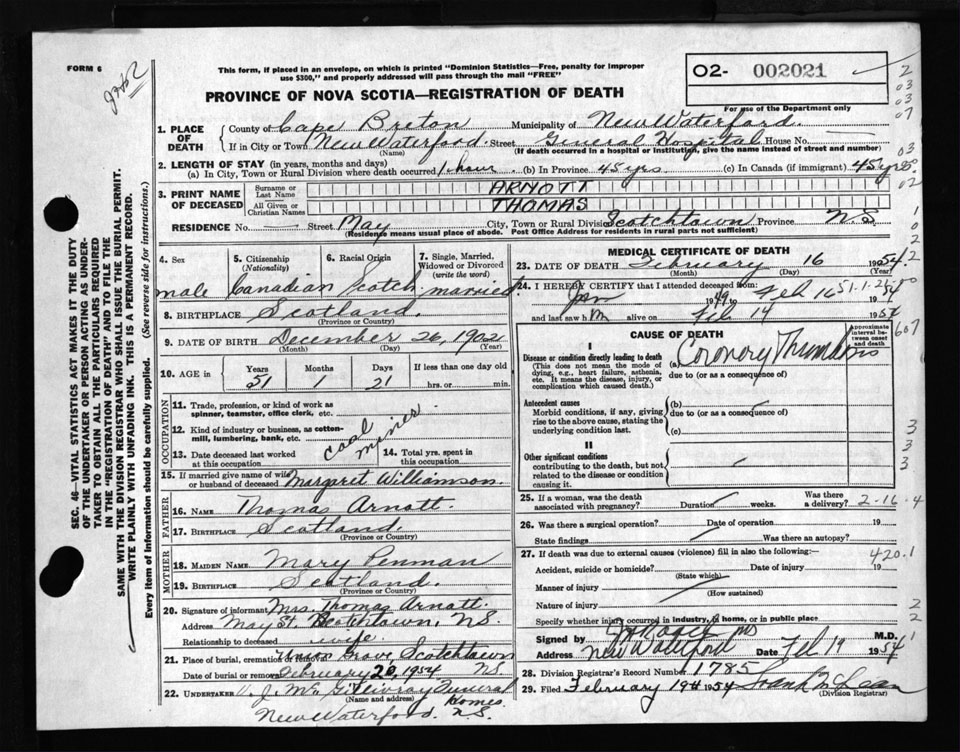 FORM 6
This form, if placed in an envelope, on which is printed "Dominion Statistics—Free, penalty for improper
use $300," and properly addressed will pass through the mail "FREE"
O2- 002021
PROVINCE OF NOVA SCOTIA—REGISTRATION OF DEATH
For use of the Department only
1. PLACE OF DEATH
County of Cape Breton Municipality of New Waterford.
If in City or Town New Waterford. Street General Hospital House No.
(Name) (If death occurred in a hospital or institution, give the name instead of street and number)
2. LENGTH OF STAY (in years, months and days)
(a) In City, Town or Rural Division where death occurred 1 hour (b) In Province 45 yrs. (c) In Canada (if immigrant) 45 yrs.
3. PRINT NAME OF DECEASED
Surname or Last Name ARNOTT
All Given or Christian Names THOMAS
RESIDENCE No. — Street May City, Town or Rural Division Scotchtown Province N.S.
(Residence means usual place of abode. Post Office Address for residents in rural parts not sufficient)
4. Sex male
5. Citizenship (Nationality) Canadian
6. Racial Origin Scotch
7. Single, Married, Widowed or Divorced (write the word) married
8. BIRTHPLACE Scotland.
(Province or Country)
9. DATE OF BIRTH December 26, 1902
(Month) (Day) (Year)
10. AGE in Years 51 Months 1 Days 21 If less than one day old hrs. or min.
OCCUPATION
11. Trade, profession, or kind of work as spinner, teamster, office clerk, etc.
12. Kind of industry or business, as cotton-mill, lumbering, bank, etc.
coal miner.
13. Date deceased last worked at this occupation
14. Total yrs. spent in this occupation
15. If married give name of wife or husband of deceased Margaret Williamson.
FATHER
16. NAME Thomas Arnott.
17. BIRTHPLACE Scotland.
(Province or Country)
MOTHER
18. MAIDEN NAME Mary Penman
19. BIRTHPLACE Scotland.
(Province or Country)
20. Signature of informant Mrs. Thomas Arnott.
Address May St. Scotchtown, N.S.
Relationship to deceased wife.
21. Place of burial, cremation or removal Union Grove, Scotchtown
Date of burial or removal February 20, 1954 N.S.
22. UNDERTAKER V. J. McGillivray Funeral Homes
(Name and address)
New Waterford. N.S.
MEDICAL CERTIFICATE OF DEATH
23. DATE OF DEATH February 16 1954
(Month) (Day) (Year)
24. I HEREBY CERTIFY that I attended deceased from:
Jan 1949 to Feb 16 1954
and last saw h m alive on Feb 14 1954
CAUSE OF DEATH
Approximate interval between onset and death
I
Disease or condition directly leading to death
(This does not mean the mode of dying, e.g., heart failure, asthenia, etc. It means the disease, injury, or complication which caused death.)
(a) Coronery Thrombosis
due to (or as a consequence)
Antecedent causes
Morbid conditions, if any, giving rise to the above cause, stating the underlying condition last.
(b)
due to (or as a consequence)
(c)
II
Other significant conditions
contributing to the death, but not related to the disease or condition causing it.
25. If a woman, was the death associated with pregnancy? Duration weeks. Was there a delivery? 2-16-4
26. Was there a surgical operation? Date of operation 19
State findings Was there an autopsy?
27. If death was due to external causes (violence) fill in also the following:—
420.1
Accident, suicide or homicide? Date of injury 19
(State which)
Manner of injury
(How sustained)
Nature of injury
Specify whether injury occurred in industry, in home, or in public place
Signed by M.D.
Address New Waterford Date Feb 19 1954
28. Division Registrar's Record Number 1785
29. Filed February 19th 1954 Frank McLean
(Division Registrar)
SEC. 46—VITAL STATISTICS ACT MAKES IT THE DUTY
OF THE UNDERTAKER OR PERSON ACTING AS UNDER-
TAKER TO OBTAIN ALL THE PARTICULARS REQUIRED
IN THE "REGISTRATION OF DEATH" AND TO FILE THE
SAME WITH THE DIVISION REGISTRAR WHO SHALL ISSUE THE BURIAL PERMIT.
WRITE PLAINLY WITH UNFADING INK. THIS IS A PERMANENT RECORD.
Every item of information should be carefully supplied. (See reverse side for instructions.)